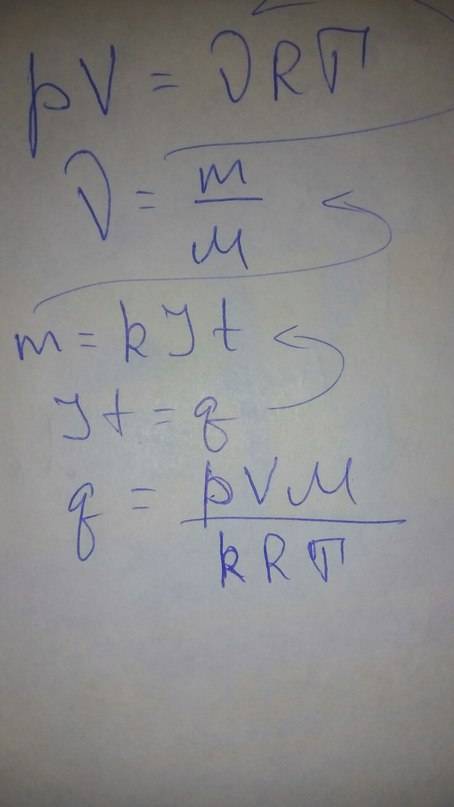 pV = νRT
ν = m/M
m = kIt
It = q
q = pVM/kRT